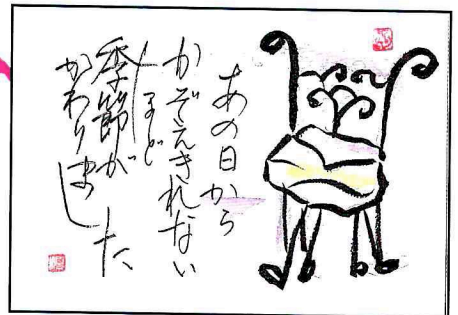 あの日から
かぞえきれない
ほど
季節が
かわりました